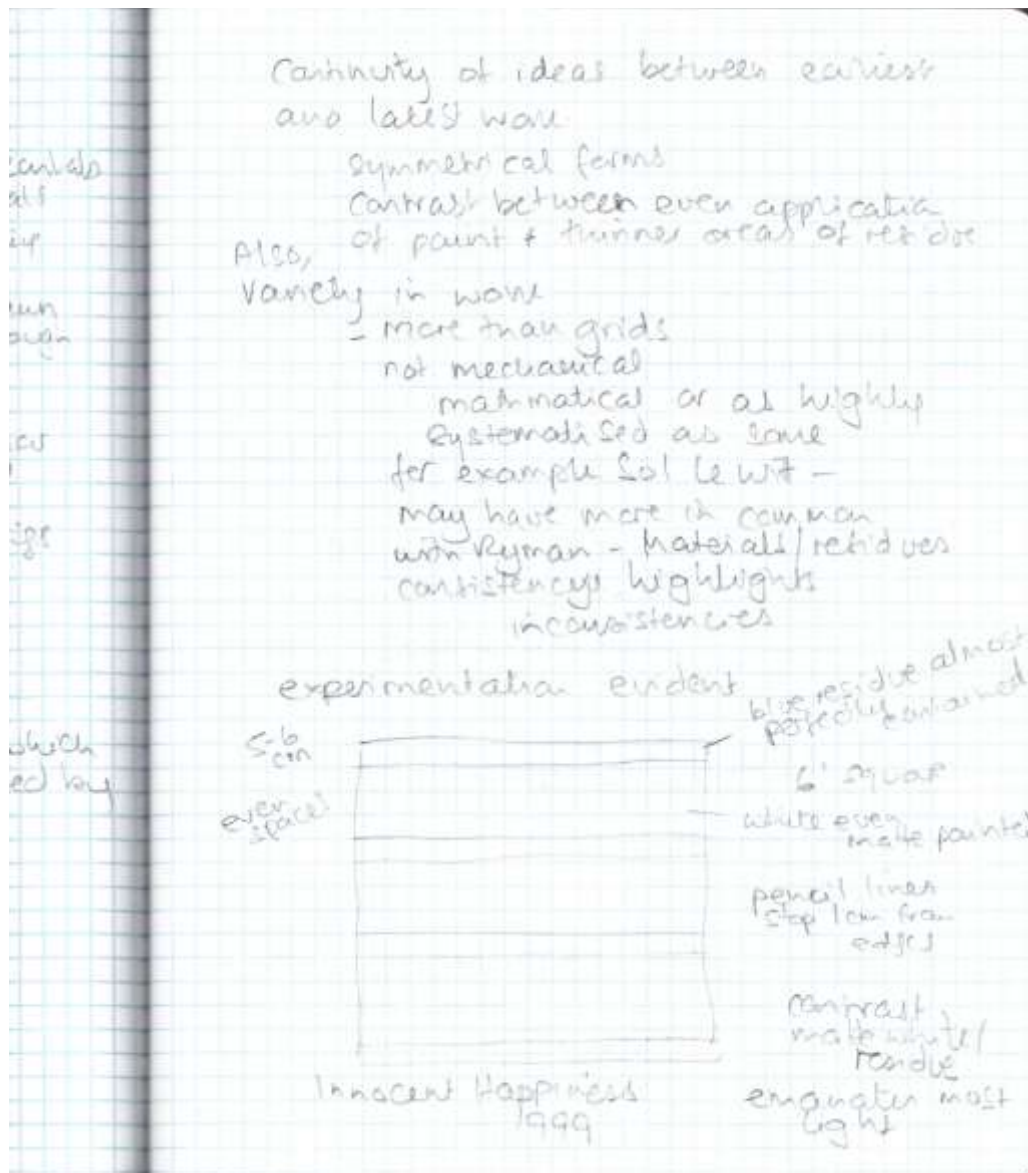 Continuity of ideas between earliest
and latest work
symmetrical forms
contrast between even application
of paint + thinner areas of residue
Also,
Variety in work
- more than grids
not mechanical
mathmatical or as highly
systematised as some
for example Sol Le Wit -
may have more in common
with Ryman - Materials/residues
consistency highlights
inconsistencies
experimentation evident
blue residue almost
perfectly contained
5-6
cm
6' square
even
spaces
white even
matte painted
pencil lines
stop 1cm from
edges
contrast
matte white/
residue
emanates most
light
Innocent Happiness
1999
which
ed by